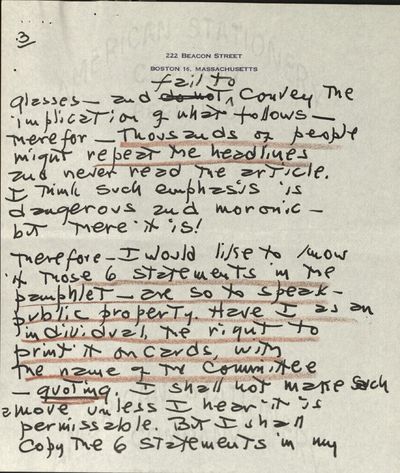 3
222 BEACON STREET
BOSTON 16, MASSACHUSETTS
fail to
glasses — and do not convey the
implication of what follows —
therefor — thousands of people
might repeat the headlines
and never read the article.
I think such emphasis is
dangerous and moronic —
but there it is!
Therefore — I would like to know
if those 6 statements in the
pamphlet — are so to speak —
public property. Have I as an
individual, the right to
print it on cards, with
the name of the Committee
— quoting. I shall not make such
a move unless I hear it is
permissable. But I shall
copy the 6 statements in my